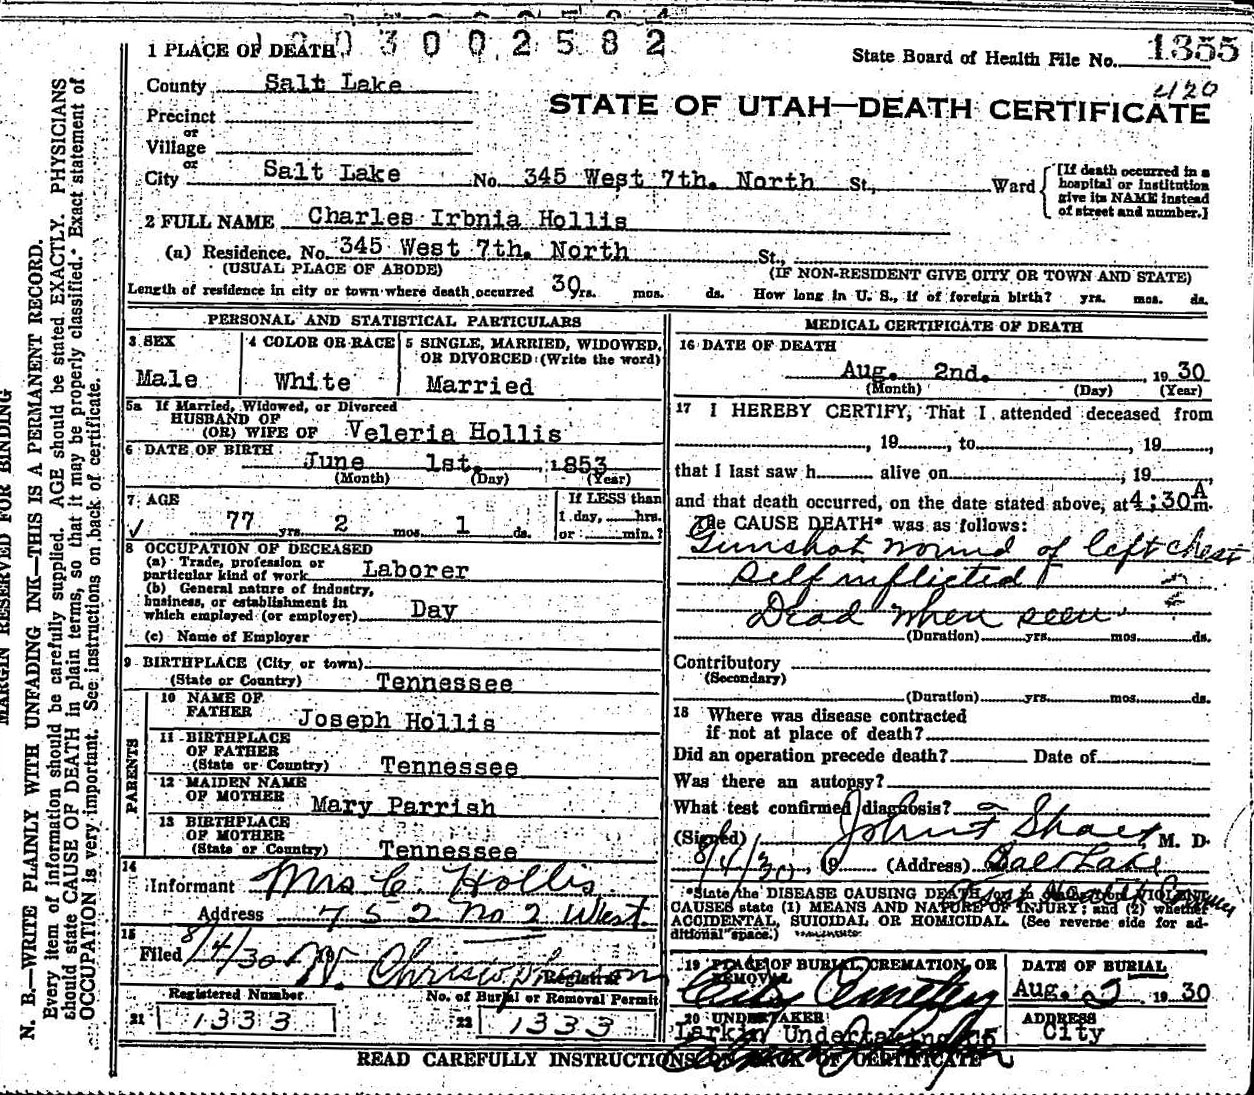 1 PLACE OF DEATH 3 0 0 2 5 8 2
State Board of Health File No. 1355
420
County Salt Lake
STATE OF UTAH—DEATH CERTIFICATE
Precinct
or
Village
or
City Salt Lake No. 345 West 7th. North St., Ward
[If death occurred in a hospital or institution give its NAME instead of street and number.]
2 FULL NAME Charles Irbnia Hollis
(a) Residence. No. 345 West 7th. North St.,
(USUAL PLACE OF ABODE) (IF NON-RESIDENT GIVE CITY OR TOWN AND STATE)
Length of residence in city or town where death occurred 30 yrs. mos. ds. How long in U. S., if of foreign birth? yrs. mos. ds.
PERSONAL AND STATISTICAL PARTICULARS
3 SEX
Male
4 COLOR OR RACE
White
5 SINGLE, MARRIED, WIDOWED, OR DIVORCED (Write the word)
Married
5a If Married, Widowed, or Divorced
HUSBAND OF
(OR) WIFE OF Veleria Hollis
6 DATE OF BIRTH June 1st. 1853
(Month) (Day) (Year)
7 AGE
✓ 77 yrs. 2 mos. 1 ds.
If LESS than
1 day, hrs.
or min.?
8 OCCUPATION OF DECEASED
(a) Trade, profession or
particular kind of work Laborer
(b) General nature of industry,
business, or establishment in
which employed (or employer) Day
(c) Name of Employer
9 BIRTHPLACE (City or town)
(State or Country) Tennessee
PARENTS
10 NAME OF
FATHER Joseph Hollis
11 BIRTHPLACE
OF FATHER
(State or Country) Tennessee
12 MAIDEN NAME
OF MOTHER Mary Parrish
13 BIRTHPLACE
OF MOTHER
(State or Country) Tennessee
14
Informant Mrs C. Hollis
Address 752 No 2 West
15
Filed 8/4/30 19 W. Christopherson
Registrar
Registered Number
21 1333
No. of Burial or Removal Permit
22 1333
MEDICAL CERTIFICATE OF DEATH
16 DATE OF DEATH
Aug. 2nd. , 19 30
(Month) (Day) (Year)
17 I HEREBY CERTIFY, That I attended deceased from
, 19 , to , 19 ,
that I last saw h alive on , 19 ,
and that death occurred, on the date stated above, at 4:30 A m.
The CAUSE DEATH* was as follows:
Gunshot wound of left chest
Self inflicted
Dead when seen
(Duration) yrs. mos. ds.
Contributory
(Secondary)
(Duration) yrs. mos. ds.
18 Where was disease contracted
if not at place of death?
Did an operation precede death? Date of
Was there an autopsy?
What test confirmed diagnosis?
(Signed) John F Sharp, M. D.
8/4/30, 19 (Address) Salt Lake
*State the DISEASE CAUSING DEATH, or in
CAUSES state (1) MEANS AND NATURE OF INJURY; and (2) whether
ACCIDENTAL, SUICIDAL OR HOMICIDAL. (See reverse side for ad-
ditional space.)
19 PLACE OF BURIAL, CREMATION, OR
REMOVAL
City Cemetery
DATE OF BURIAL
Aug. 5 19 30
20 UNDERTAKER
Larkin Undertaking Co
ADDRESS
City
READ CAREFULLY INSTRUCTIONS ON BACK OF CERTIFICATE
MARGIN RESERVED FOR BINDING
N. B.—WRITE PLAINLY WITH UNFADING INK—THIS IS A PERMANENT RECORD.
Every item of information should be carefully supplied. AGE should be stated EXACTLY. PHYSICIANS
should state CAUSE OF DEATH in plain terms, so that it may be properly classified. Exact statement of
OCCUPATION is very important. See instructions on back of certificate.